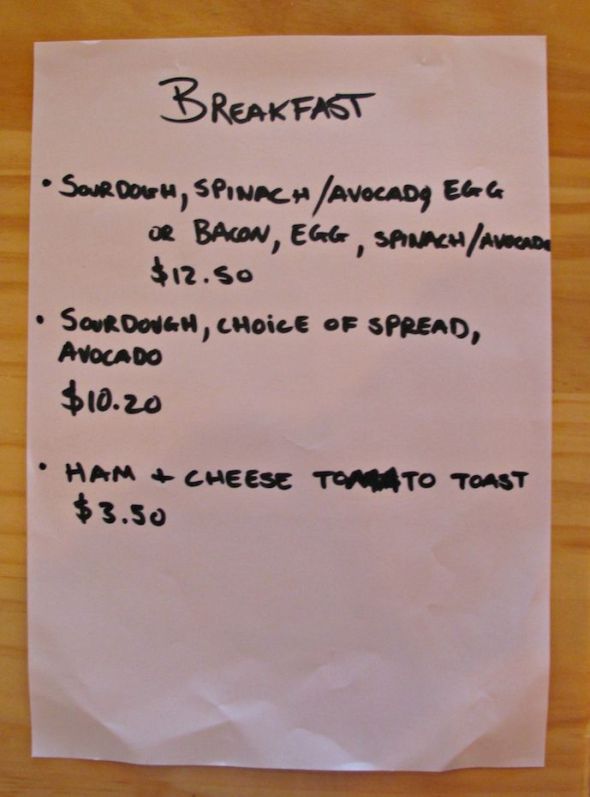 BREAKFAST
• SOURDOUGH, SPINACH/AVOCADO, EGG
OR BACON, EGG, SPINACH/AVOCADO
$12.50
• SOURDOUGH, CHOICE OF SPREAD,
AVOCADO
$10.20
• HAM + CHEESE TOMATO TOAST
$3.50